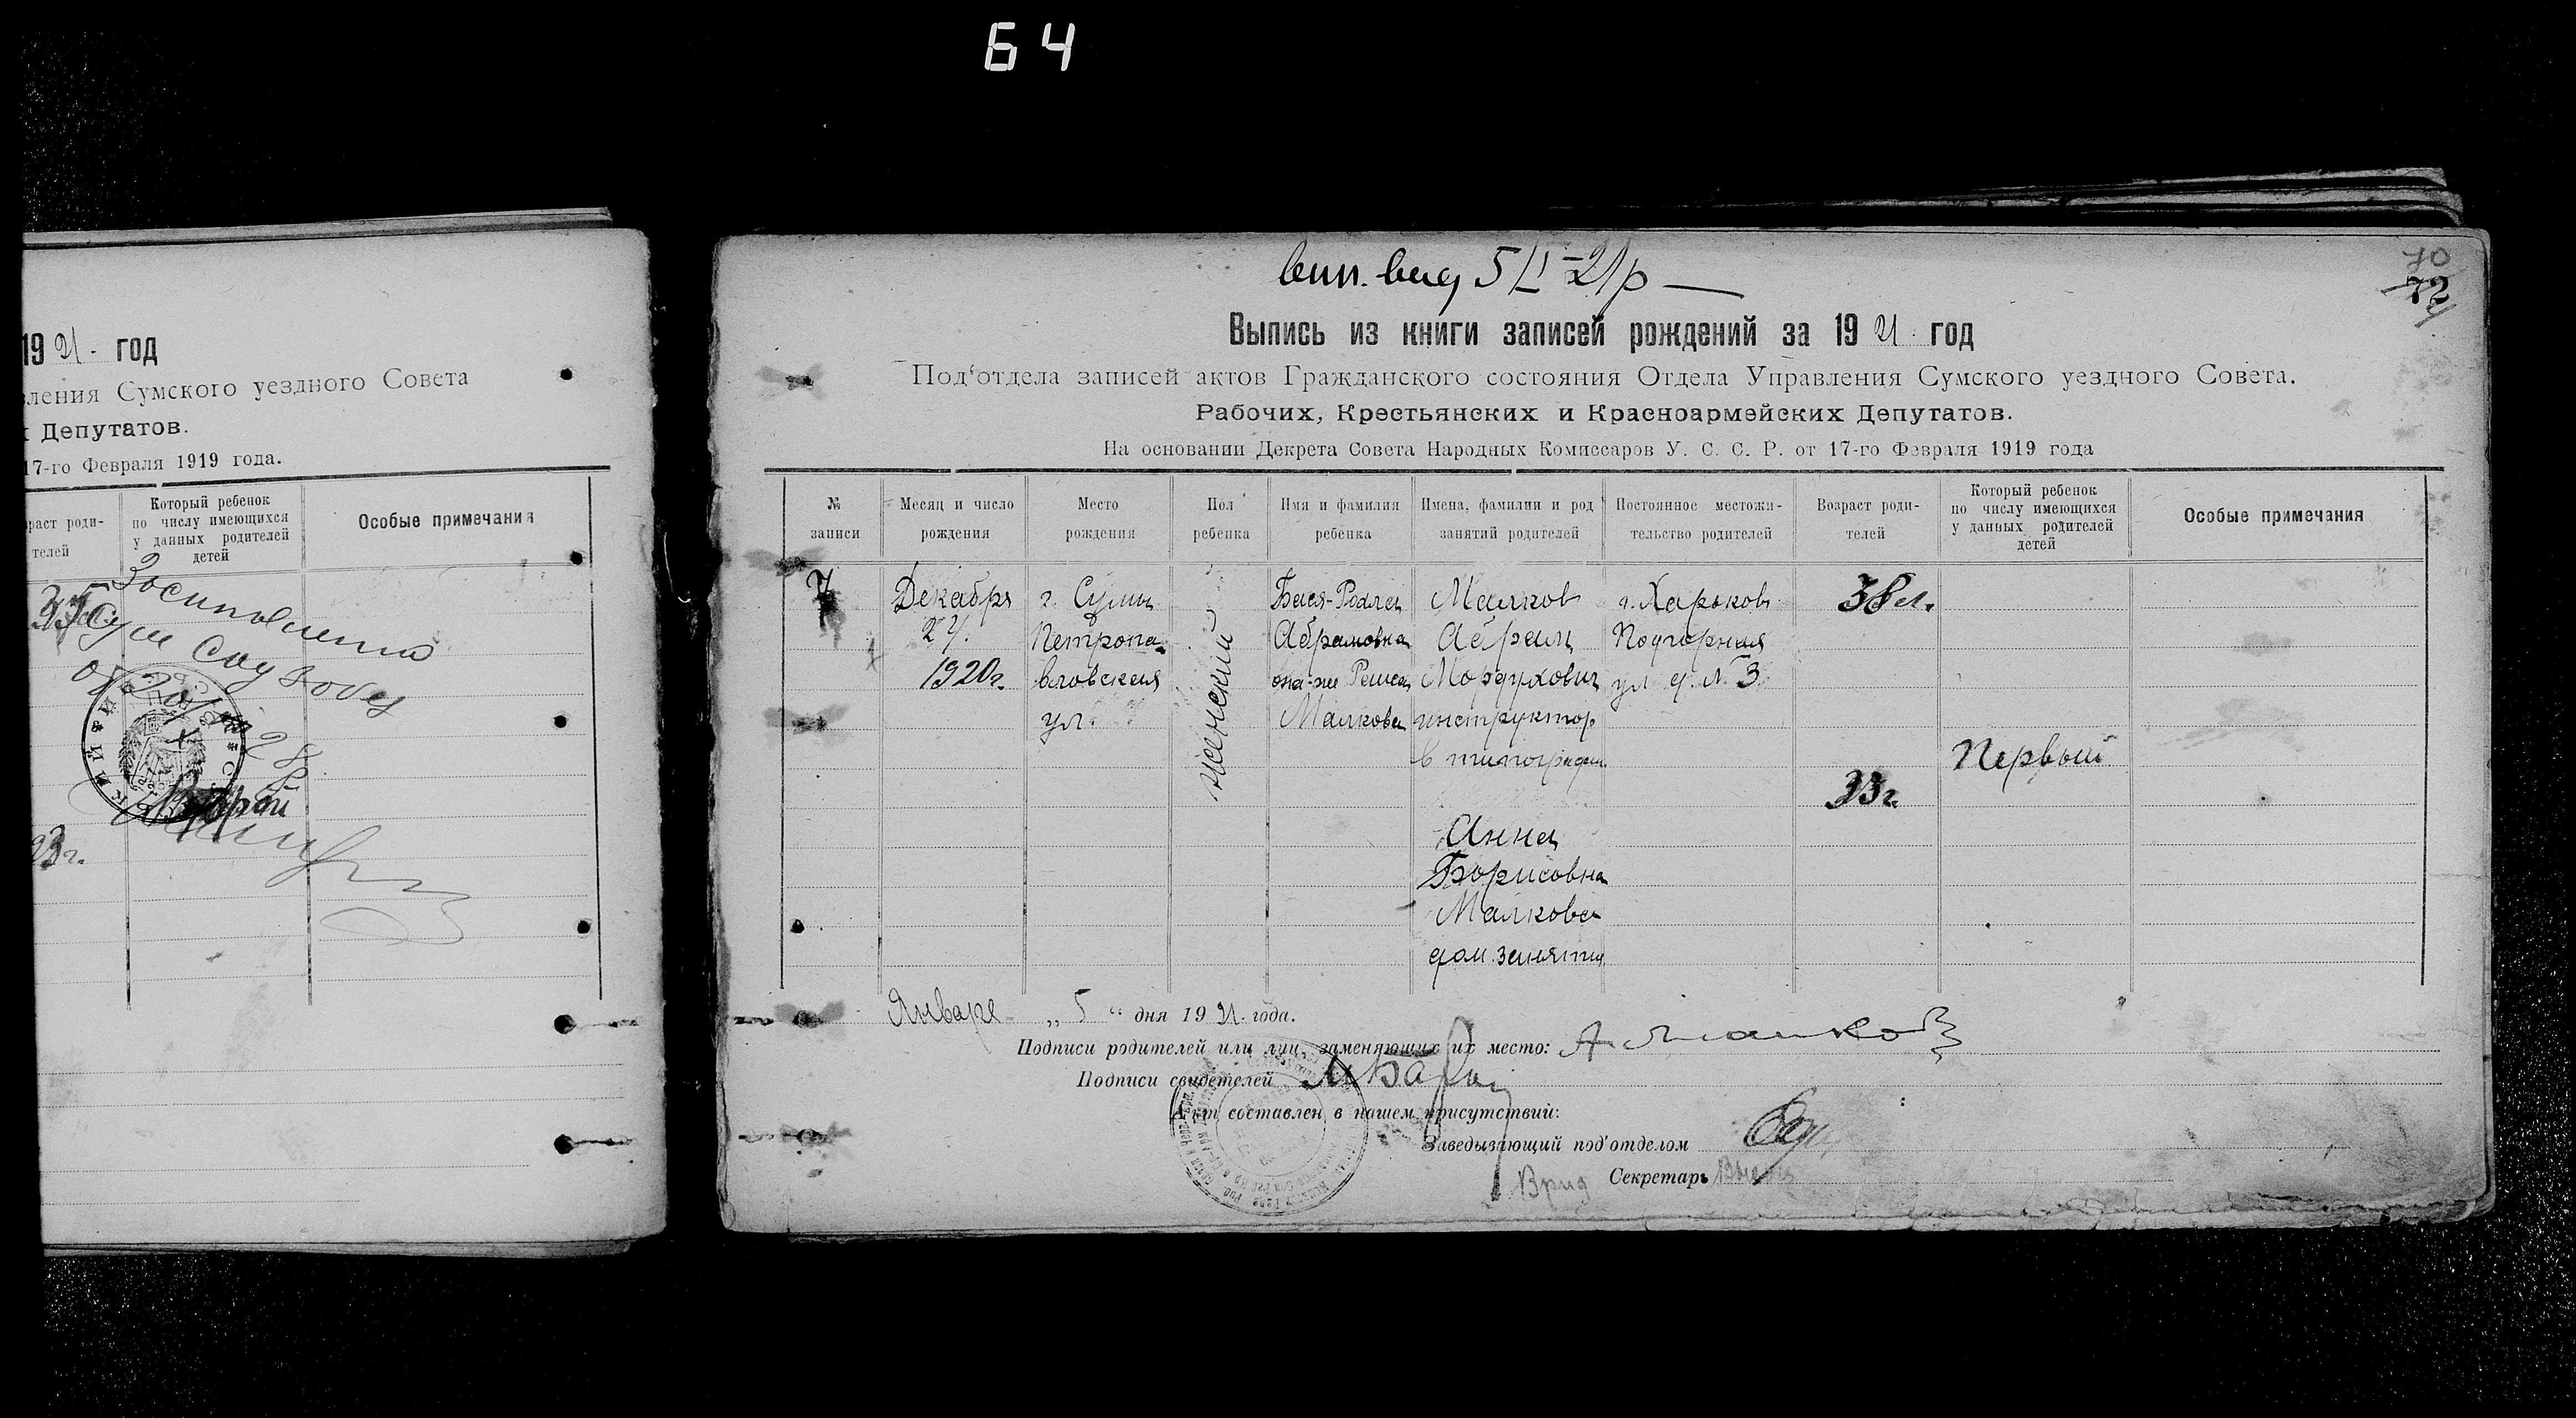 64
19 21. год
вления Сумского уездного Совета
х Депутатов.
17-го Февраля 1919 года.
раст роди-
телей
Который ребенок
по числу имеющихся
у данных родителей
детей
Особые примечания
Второй
23 г.
70
72
вип. вид 5/I-21р
Выпись из книги записей рождений за 19 21. год
Под‘отдела записей актов Гражданского состояния Отдела Управления Сумского уездного Совета.
Рабочих, Крестьянских и Красноармейских Депутатов.
На основании Декрета Совета Народных Комиссаров У. С. С. Р. от 17-го Февраля 1919 года
№
записи
Месяц и число
рождения
Место
рождения
Пол
ребенка
Имя и фамилия
ребенка
Имена, фамилии и род
занятий родителей
Постоянное местожи-
тельство родителей
Возраст роди-
телей
Который ребенок
по числу имеющихся
у данных родителей
детей
Особые примечания
7
Декабря
24.
1920 г.
г. Сумы
Петропа-
вловская
ул.
женский
Бася-Родля
Абрамовна
она-же Раиса
Малкова
Малков
Абрам
Мордухович
инструктор
в типографии
Анна
Борисовна
Малкова
дом. занятия
г. Харьков
Подгорная
ул. д. № 3
38 л.
33 г.
Первый
Января „ 5 “ дня 19 21. года.
Подписи родителей или лиц, заменяющих их место: А Малков
Подписи свидетелей
Акт составлен в нашем присутствий:
Заведывающий под‘отделом
Врид Секретарь